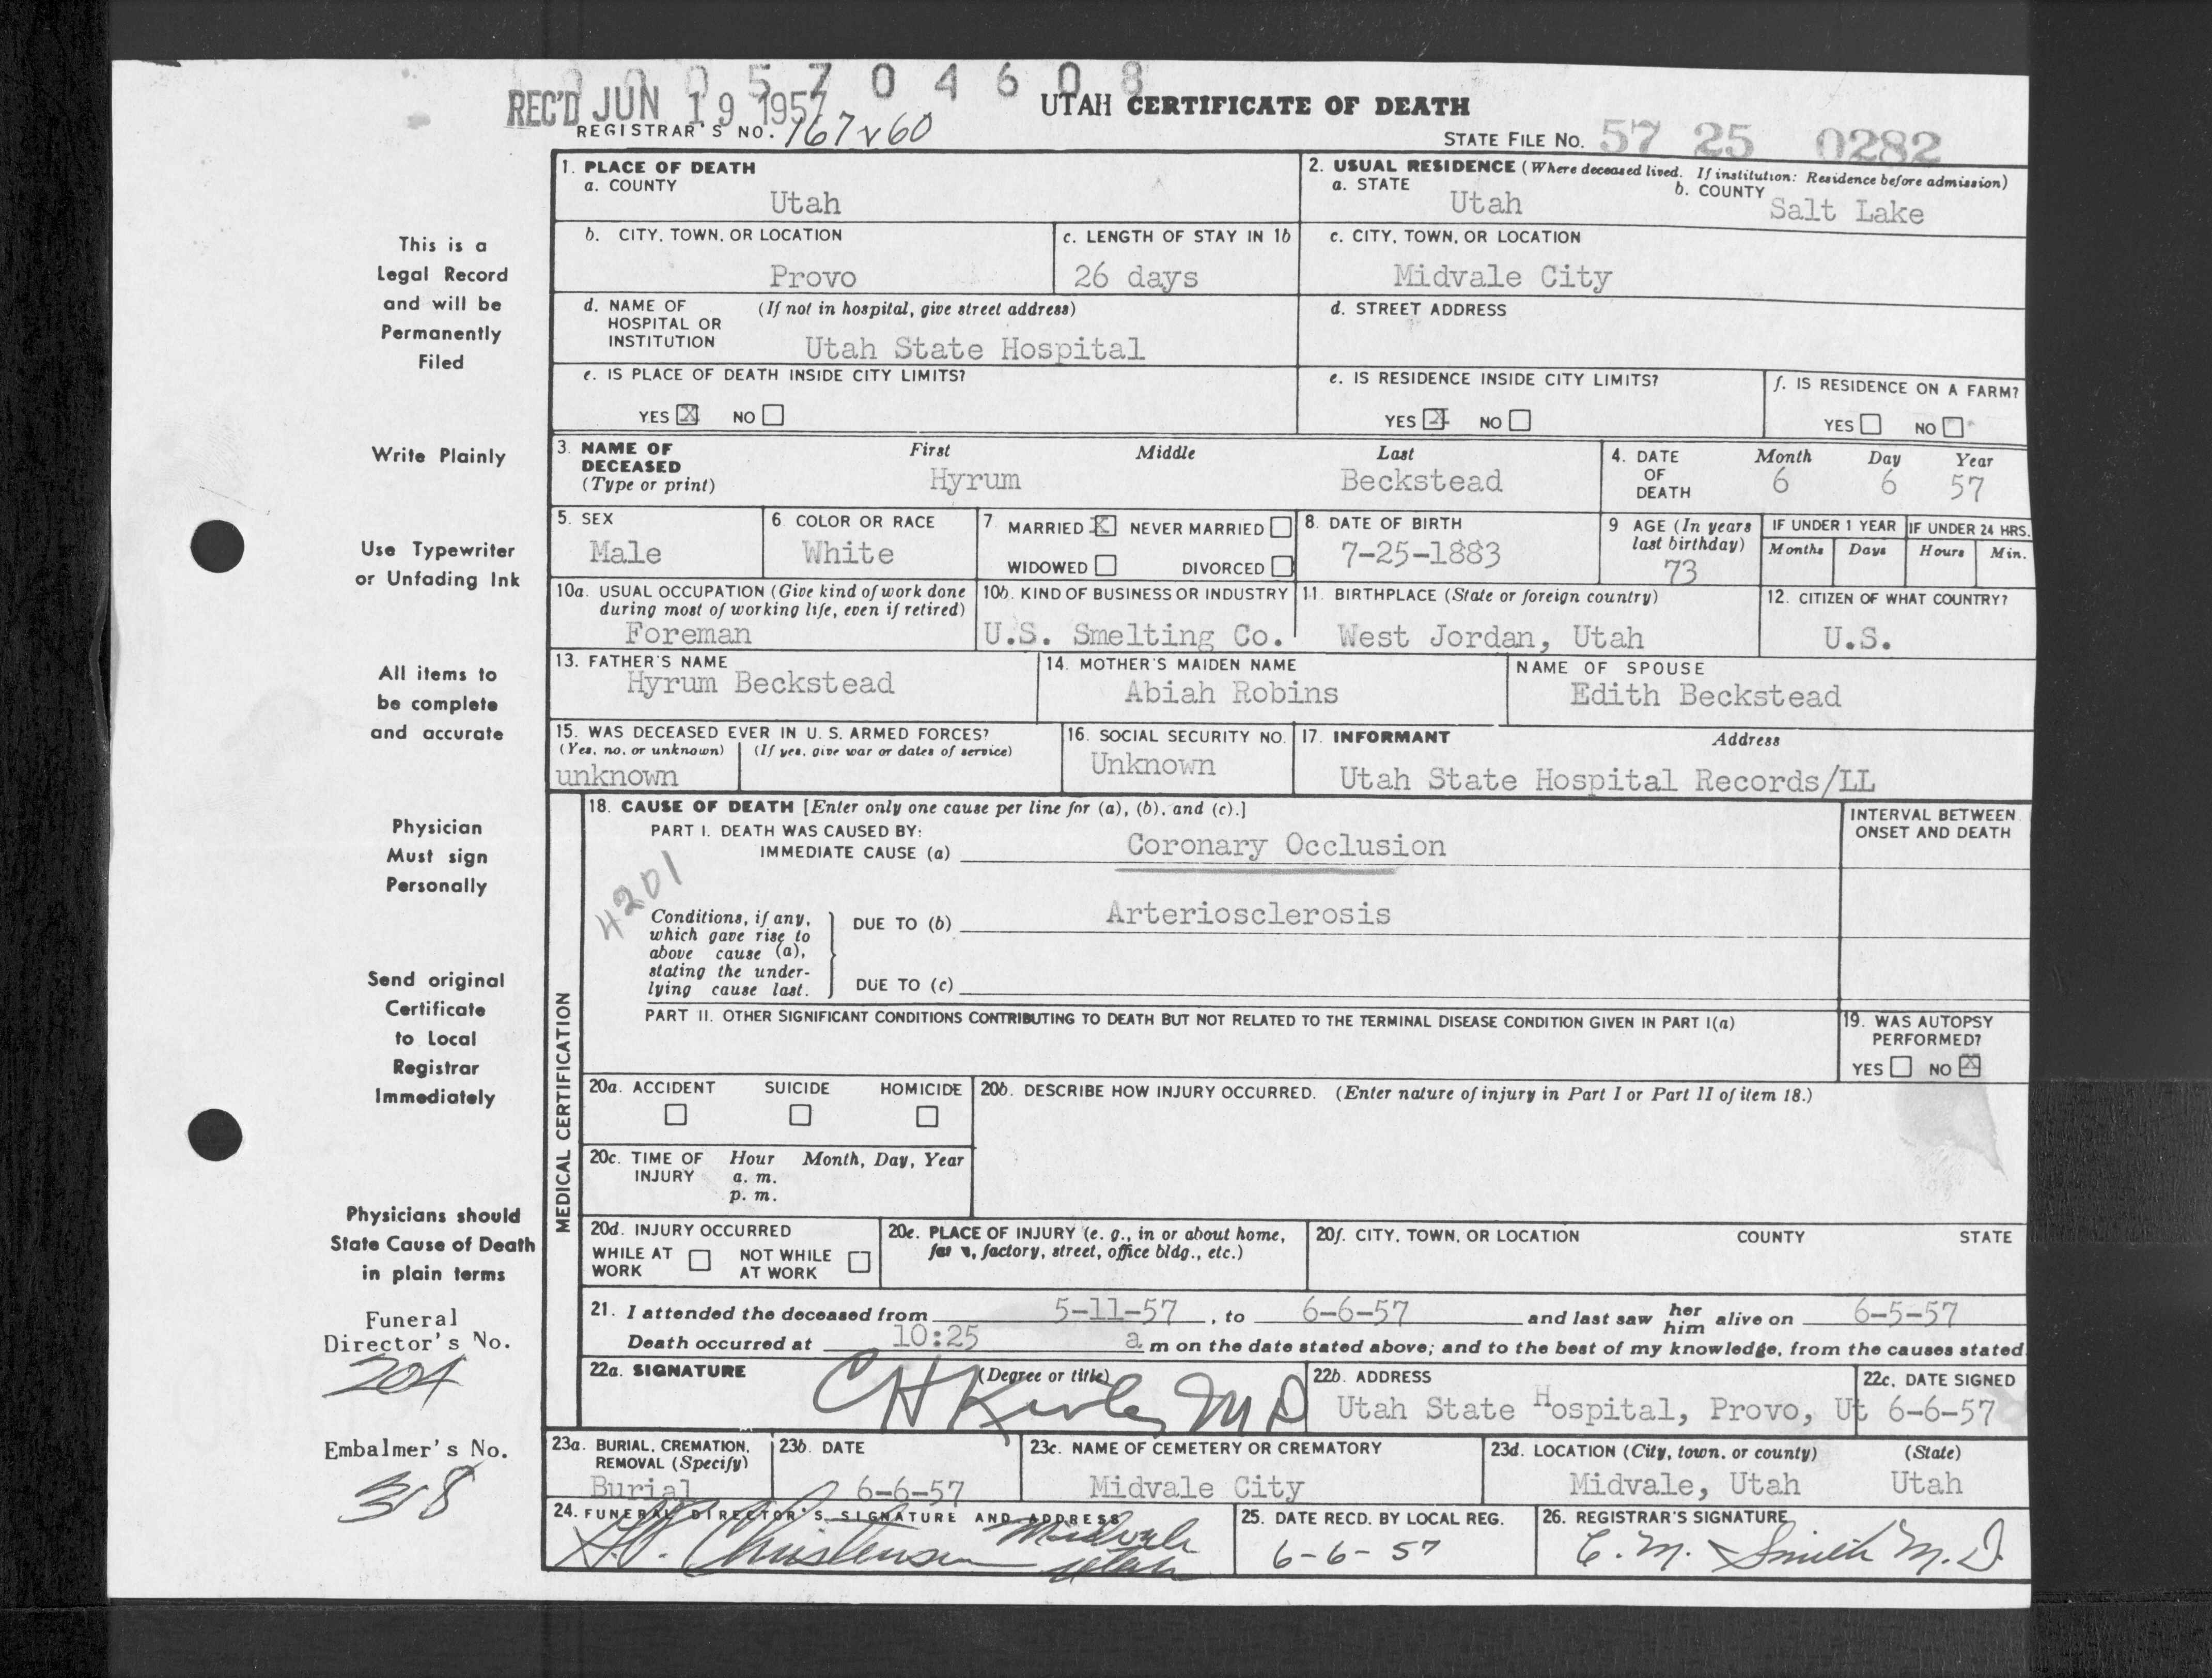 0 0 0 5 7 0 4 6 0 8
REC'D JUN 19 1957
UTAH CERTIFICATE OF DEATH
REGISTRAR'S NO. 167 v 60
STATE FILE NO. 57 25 0282
1. PLACE OF DEATH
a. COUNTY
Utah
2. USUAL RESIDENCE (Where deceased lived. If institution: Residence before admission)
a. STATE
b. COUNTY
Utah
Salt Lake
b. CITY, TOWN, OR LOCATION
Provo
c. LENGTH OF STAY IN 1b
26 days
c. CITY, TOWN, OR LOCATION
Midvale City
d. NAME OF (If not in hospital, give street address)
HOSPITAL OR
INSTITUTION
Utah State Hospital
d. STREET ADDRESS
e. IS PLACE OF DEATH INSIDE CITY LIMITS?
YES X NO
e. IS RESIDENCE INSIDE CITY LIMITS?
YES X NO
f. IS RESIDENCE ON A FARM?
YES NO
3. NAME OF
DECEASED
(Type or print)
First
Hyrum
Middle
Last
Beckstead
4. DATE
OF
DEATH
Month Day Year
6 6 57
5. SEX
Male
6. COLOR OR RACE
White
7. MARRIED X NEVER MARRIED
WIDOWED DIVORCED
8. DATE OF BIRTH
7-25-1883
9 AGE (In years
last birthday)
73
IF UNDER 1 YEAR
Months Days
IF UNDER 24 HRS.
Hours Min.
10a. USUAL OCCUPATION (Give kind of work done
during most of working life, even if retired)
Foreman
10b. KIND OF BUSINESS OR INDUSTRY
U.S. Smelting Co.
11. BIRTHPLACE (State or foreign country)
West Jordan, Utah
12. CITIZEN OF WHAT COUNTRY?
U.S.
13. FATHER'S NAME
Hyrum Beckstead
14. MOTHER'S MAIDEN NAME
Abiah Robins
NAME OF SPOUSE
Edith Beckstead
15. WAS DECEASED EVER IN U. S. ARMED FORCES?
(Yes, no, or unknown) (If yes, give war or dates of service)
unknown
16. SOCIAL SECURITY NO.
Unknown
17. INFORMANT Address
Utah State Hospital Records/LL
MEDICAL CERTIFICATION
18. CAUSE OF DEATH [Enter only one cause per line for (a), (b), and (c).]
PART I. DEATH WAS CAUSED BY:
IMMEDIATE CAUSE (a) Coronary Occlusion
INTERVAL BETWEEN
ONSET AND DEATH
4201
Conditions, if any,
which gave rise to
above cause (a),
stating the under-
lying cause last.
DUE TO (b) Arteriosclerosis
DUE TO (c)
PART II. OTHER SIGNIFICANT CONDITIONS CONTRIBUTING TO DEATH BUT NOT RELATED TO THE TERMINAL DISEASE CONDITION GIVEN IN PART I(a)
19. WAS AUTOPSY
PERFORMED?
YES NO X
20a. ACCIDENT SUICIDE HOMICIDE
20b. DESCRIBE HOW INJURY OCCURRED. (Enter nature of injury in Part I or Part II of item 18.)
20c. TIME OF Hour Month, Day, Year
INJURY a. m.
p. m.
20d. INJURY OCCURRED
WHILE AT NOT WHILE
WORK AT WORK
20e. PLACE OF INJURY (e. g., in or about home,
farm, factory, street, office bldg., etc.)
20f. CITY, TOWN, OR LOCATION COUNTY STATE
21. I attended the deceased from 5-11-57, to 6-6-57 and last saw her him alive on 6-5-57
Death occurred at 10:25 a m on the date stated above; and to the best of my knowledge, from the causes stated.
22a. SIGNATURE (Degree or title)
M D
22b. ADDRESS
Utah State Hospital, Provo, Ut
22c. DATE SIGNED
6-6-57
23a. BURIAL, CREMATION,
REMOVAL (Specify)
Burial
23b. DATE
6-6-57
23c. NAME OF CEMETERY OR CREMATORY
Midvale City
23d. LOCATION (City, town, or county) (State)
Midvale, Utah Utah
24. FUNERAL DIRECTOR'S SIGNATURE AND ADDRESS
Christensen Midvale
Utah
25. DATE RECD. BY LOCAL REG.
6-6-57
26. REGISTRAR'S SIGNATURE
C. M. Smith M.D.
This is a
Legal Record
and will be
Permanently
Filed
Write Plainly
Use Typewriter
or Unfading Ink
All items to
be complete
and accurate
Physician
Must sign
Personally
Send original
Certificate
to Local
Registrar
Immediately
Physicians should
State Cause of Death
in plain terms
Funeral
Director's No.
204
Embalmer's No.
318